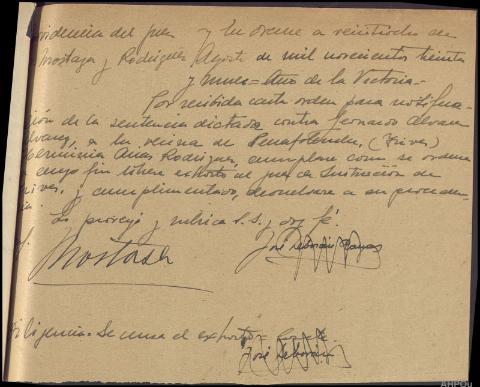 videncia del juez y En Orense a veintiocho de
Mostaza y Rodriguez Agosto de mil novecientos treinta
y nueve = Año de la Victoria.-
Por recibida carta orden para notifica-
ción de la sentencia dictada contra Gernardo Alvarez
lvarez, a la vecina de Penafolenche, (Trives)
Herminia Arias Rodriguez, cumplase como se ordena
a cuyo fin librese exhorto al juez de Instrucción de
rives, y cumplimentado, devuelvase a su proceden-
cia.
Lo proveyó y rubrica S.S. y doy fé.
Mostaza José
iligencia = Se cursa el exhorto = doy fé
José
AHPOu